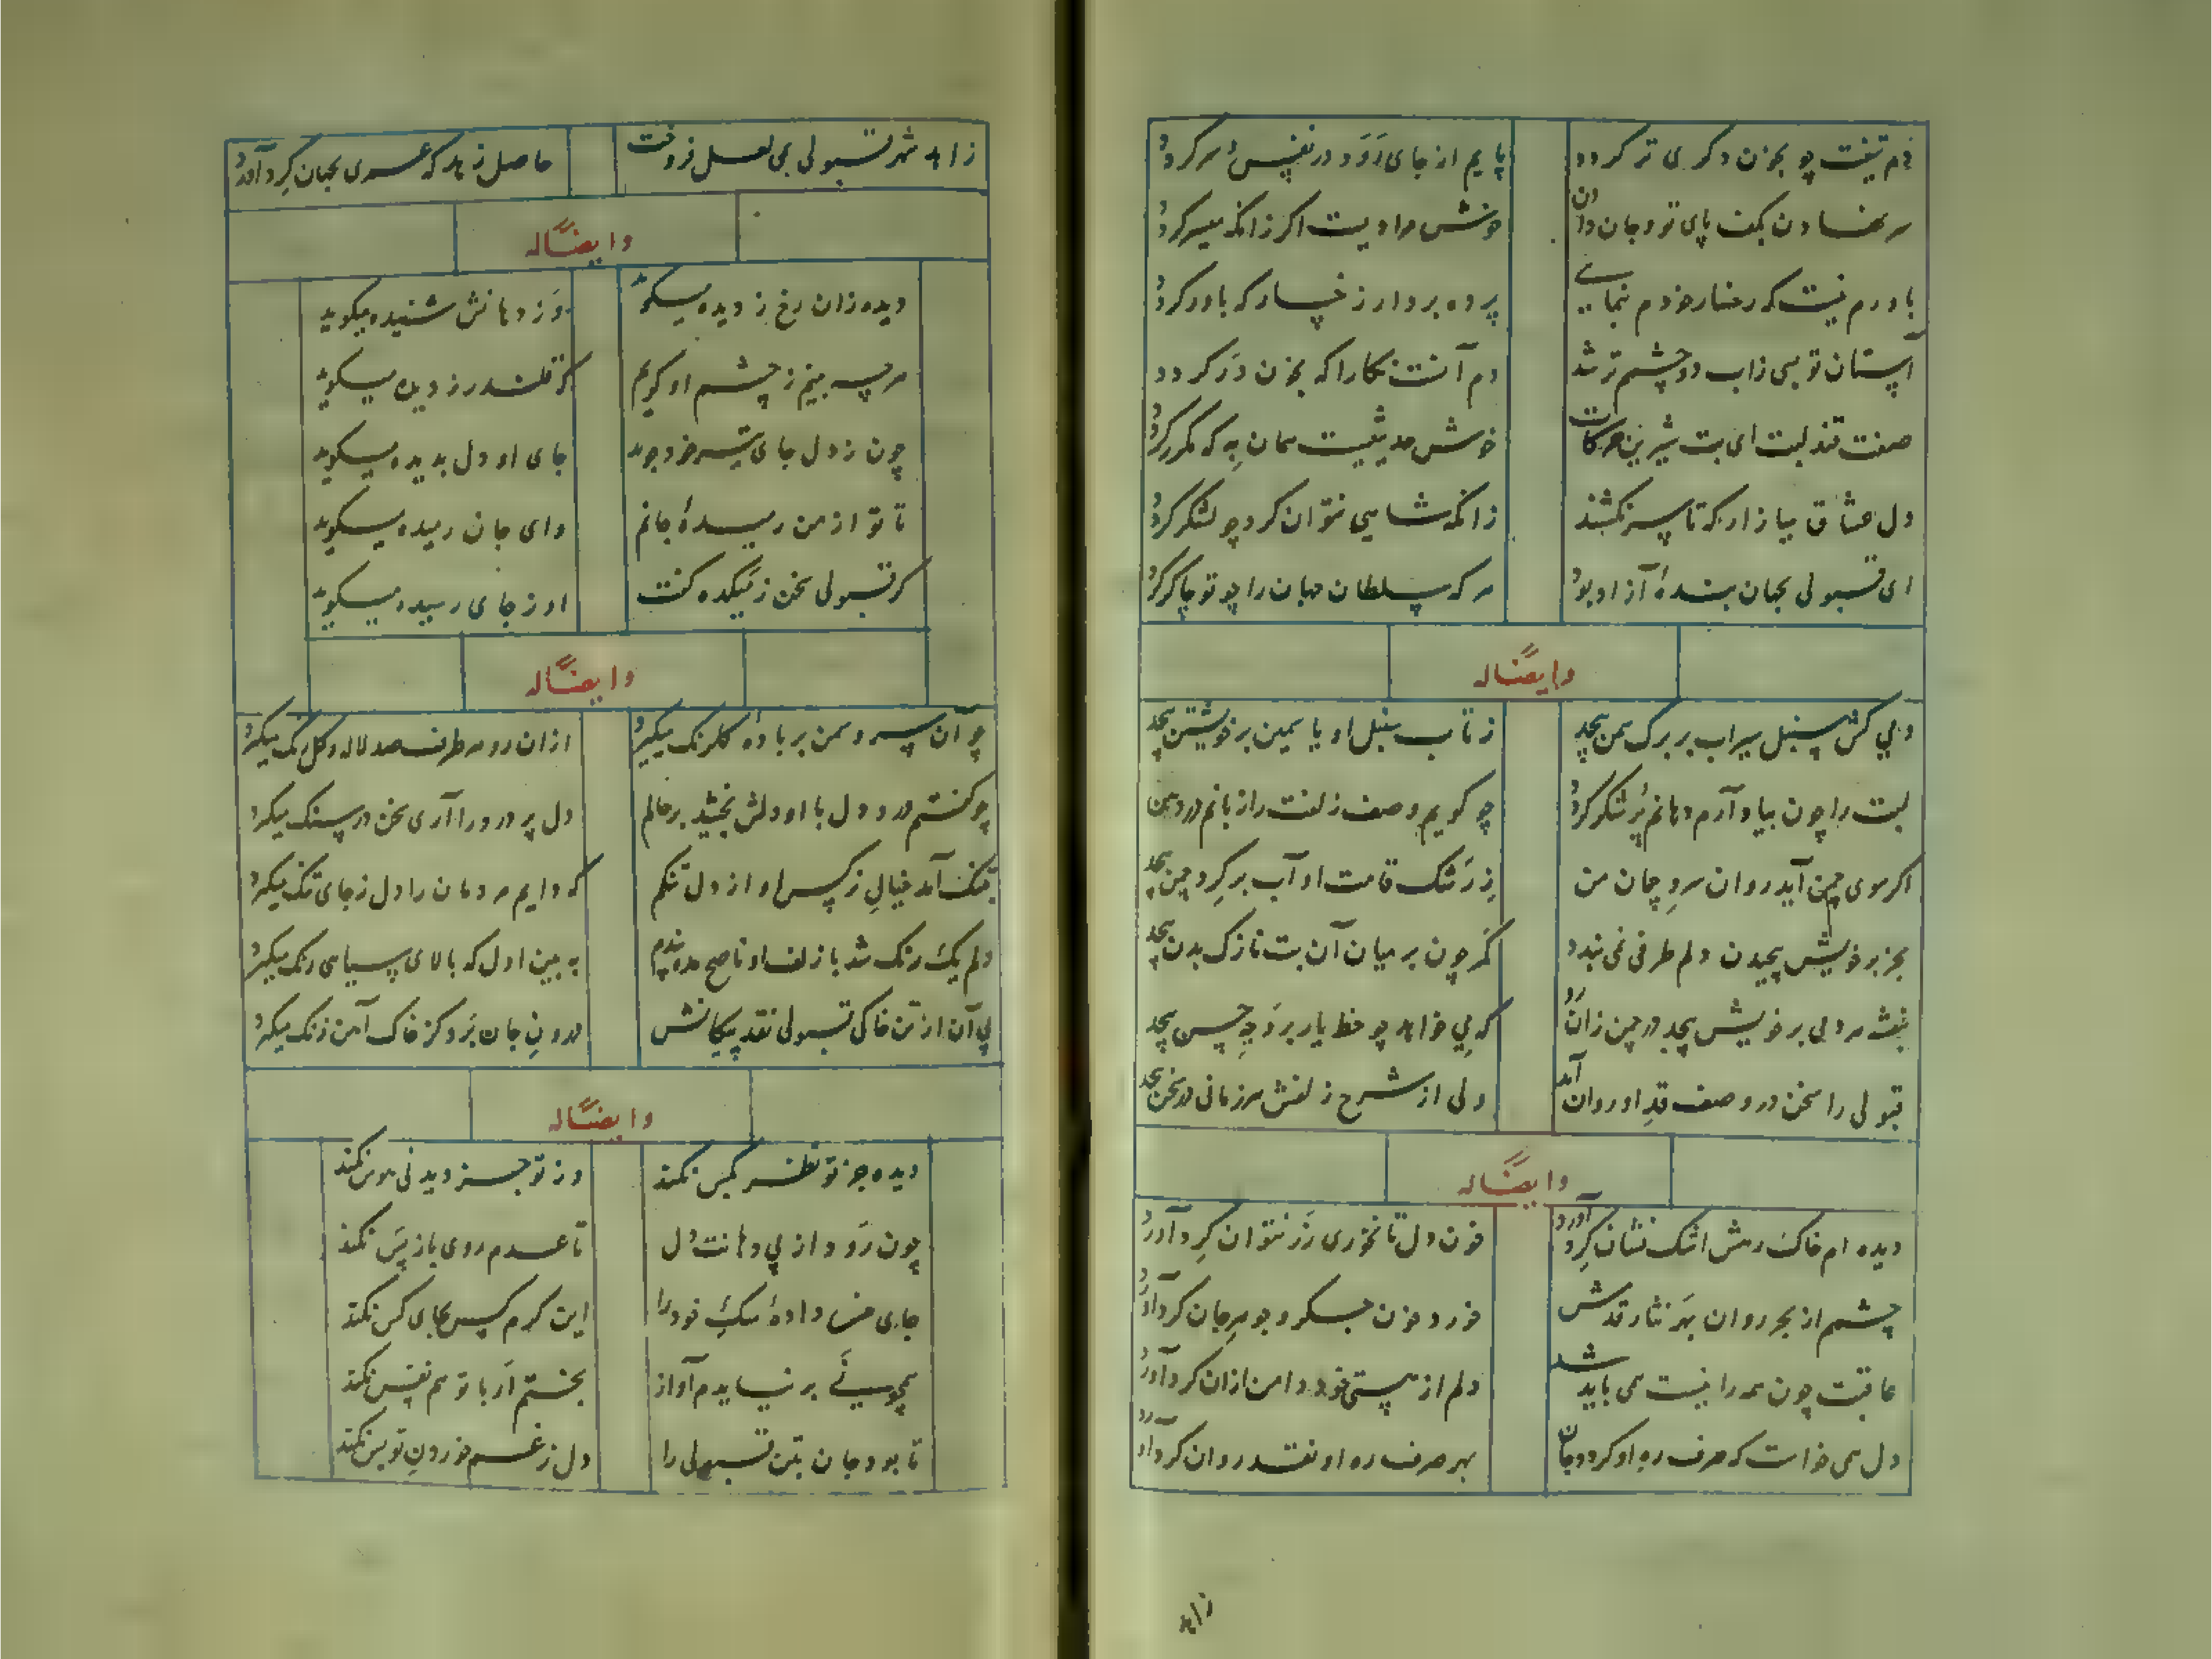 دم تیغت چو بخون دگری تر گردد پایم از جای رود در نفس سر گردد
سر نهادن بکف پای تو و جان دادن خوش مرادیست اگر زانکه میسر گردد
باورم نیست که رخسار خودم بنمایی پرده بردار ز رخسار که باور گردد
آستان تو بسی زاب دو چشم تر شد دم آنست نگارا که بخون در گردد
صفت قند لبت ای بت شیرین حرکات خوش حدیثیست همان به که مکرر گردد
دل عشاق میازار که تا سر نکشند زانکه شاهی نتوان کرد چو لشکر گردد
ای قبولی بجهان بندهٔ آزاد بود هر که سلطان جهان را چو تو چاکر گردد
وایضًا له
دمی کش سنبل سیراب بر برگ سمن پیچد ز تاب سنبل او یاسمین بر خویشتن پیچد
لبت را چون بیاد آرم دهانم پُر شکر گردد چو گویم وصف زلفت را زبانم در دهن
اگر سوی چمن آید روان سروِ چمان من زِ رَشک قامت او آب بر گِرد چمن پیچد
بجز بر خویش پیچیدن دلم طرفی نمی بندد کمر چون بر میان آن بت نازک بدن پیچد
بنفشه هر دمی بر خویش پیچد در چمن زان رو که می خواهد چو خط یار بر وَجهِ حسن پیچد
قبولی را سخن در وصف قدِ او روان آمد ولی از شرح زلفش هر زمانی در سخن پیچد
وایضًا له
دیده ام خاک رهش اشک نشان گِرد آورد خون دل تا نخوری زَر نتوان گِرد آورد
چشم از بحر روان بهَر نثار قدمش خورد خون جگر و جوهرِ جان گرد آورد
عاقبت چون همه را نیست همی باید شد دلم از هستی خود دامن ازان گرد آورد
دل همی خواست که صرف ره او گردد جان بهر صرف ره او نقد روان گرد آورد
زاهد
زاهد شهر قبولی بمی لعل فروخت حاصل زهد که عمری بجهان گِرد آورد
وایضًا له
دیده زان رخ ز دیده میگوید وَز دهانش شنیده میگوید
هر چه بینم ز چشم او گویم که قلندر ز دیده میگوید
چون ز دل جای تیر خود جوید جای او دل بدیده میگوید
تا تو از من رمیدهٔ جانم وای جان رمیده میگوید
گر قبولی سخن ز میکده گفت او ز جای رسیده میگوید
وایضًا له
چو آن سرو سمن بر بادهٔ گلرنگ میگیرد ازان رو هر طرف صد لاله و گل رنگ میگیرد
چو گفتم درد دل با او دلش بخشید بر حالم دل پر درد را آری سخن در سنگ میگیرد
بتنگ آمد خیالِ نرگس او از دل تنگم که دایم مردمان را دل ز جای تنگ میگیرد
دلم یک رنگ شد با زلف او ناصح مده پندم به بین اول که بالای سیاهی رنگ میگیرد
پی آن از تن خاکی قبولی نقد پیکانش درونِ جان بَرد کز خاک آهن زنگ میگیرد
وایضًا له
دیده جز تو نظر بکس نکند وز تو جز دیدنی هوس نکند
چون رَود از پی دهانت دل تا عدم روی باز پَس نکند
جای من دادهٔ سگِ خود را این کرم کس بجای کس نکند
همچو نَے بر نیایدم آواز بختم اَر با تو هم نفس نکند
تا بود جان بتن قبولی را دل ز غم خوردنِ تو بس نکند